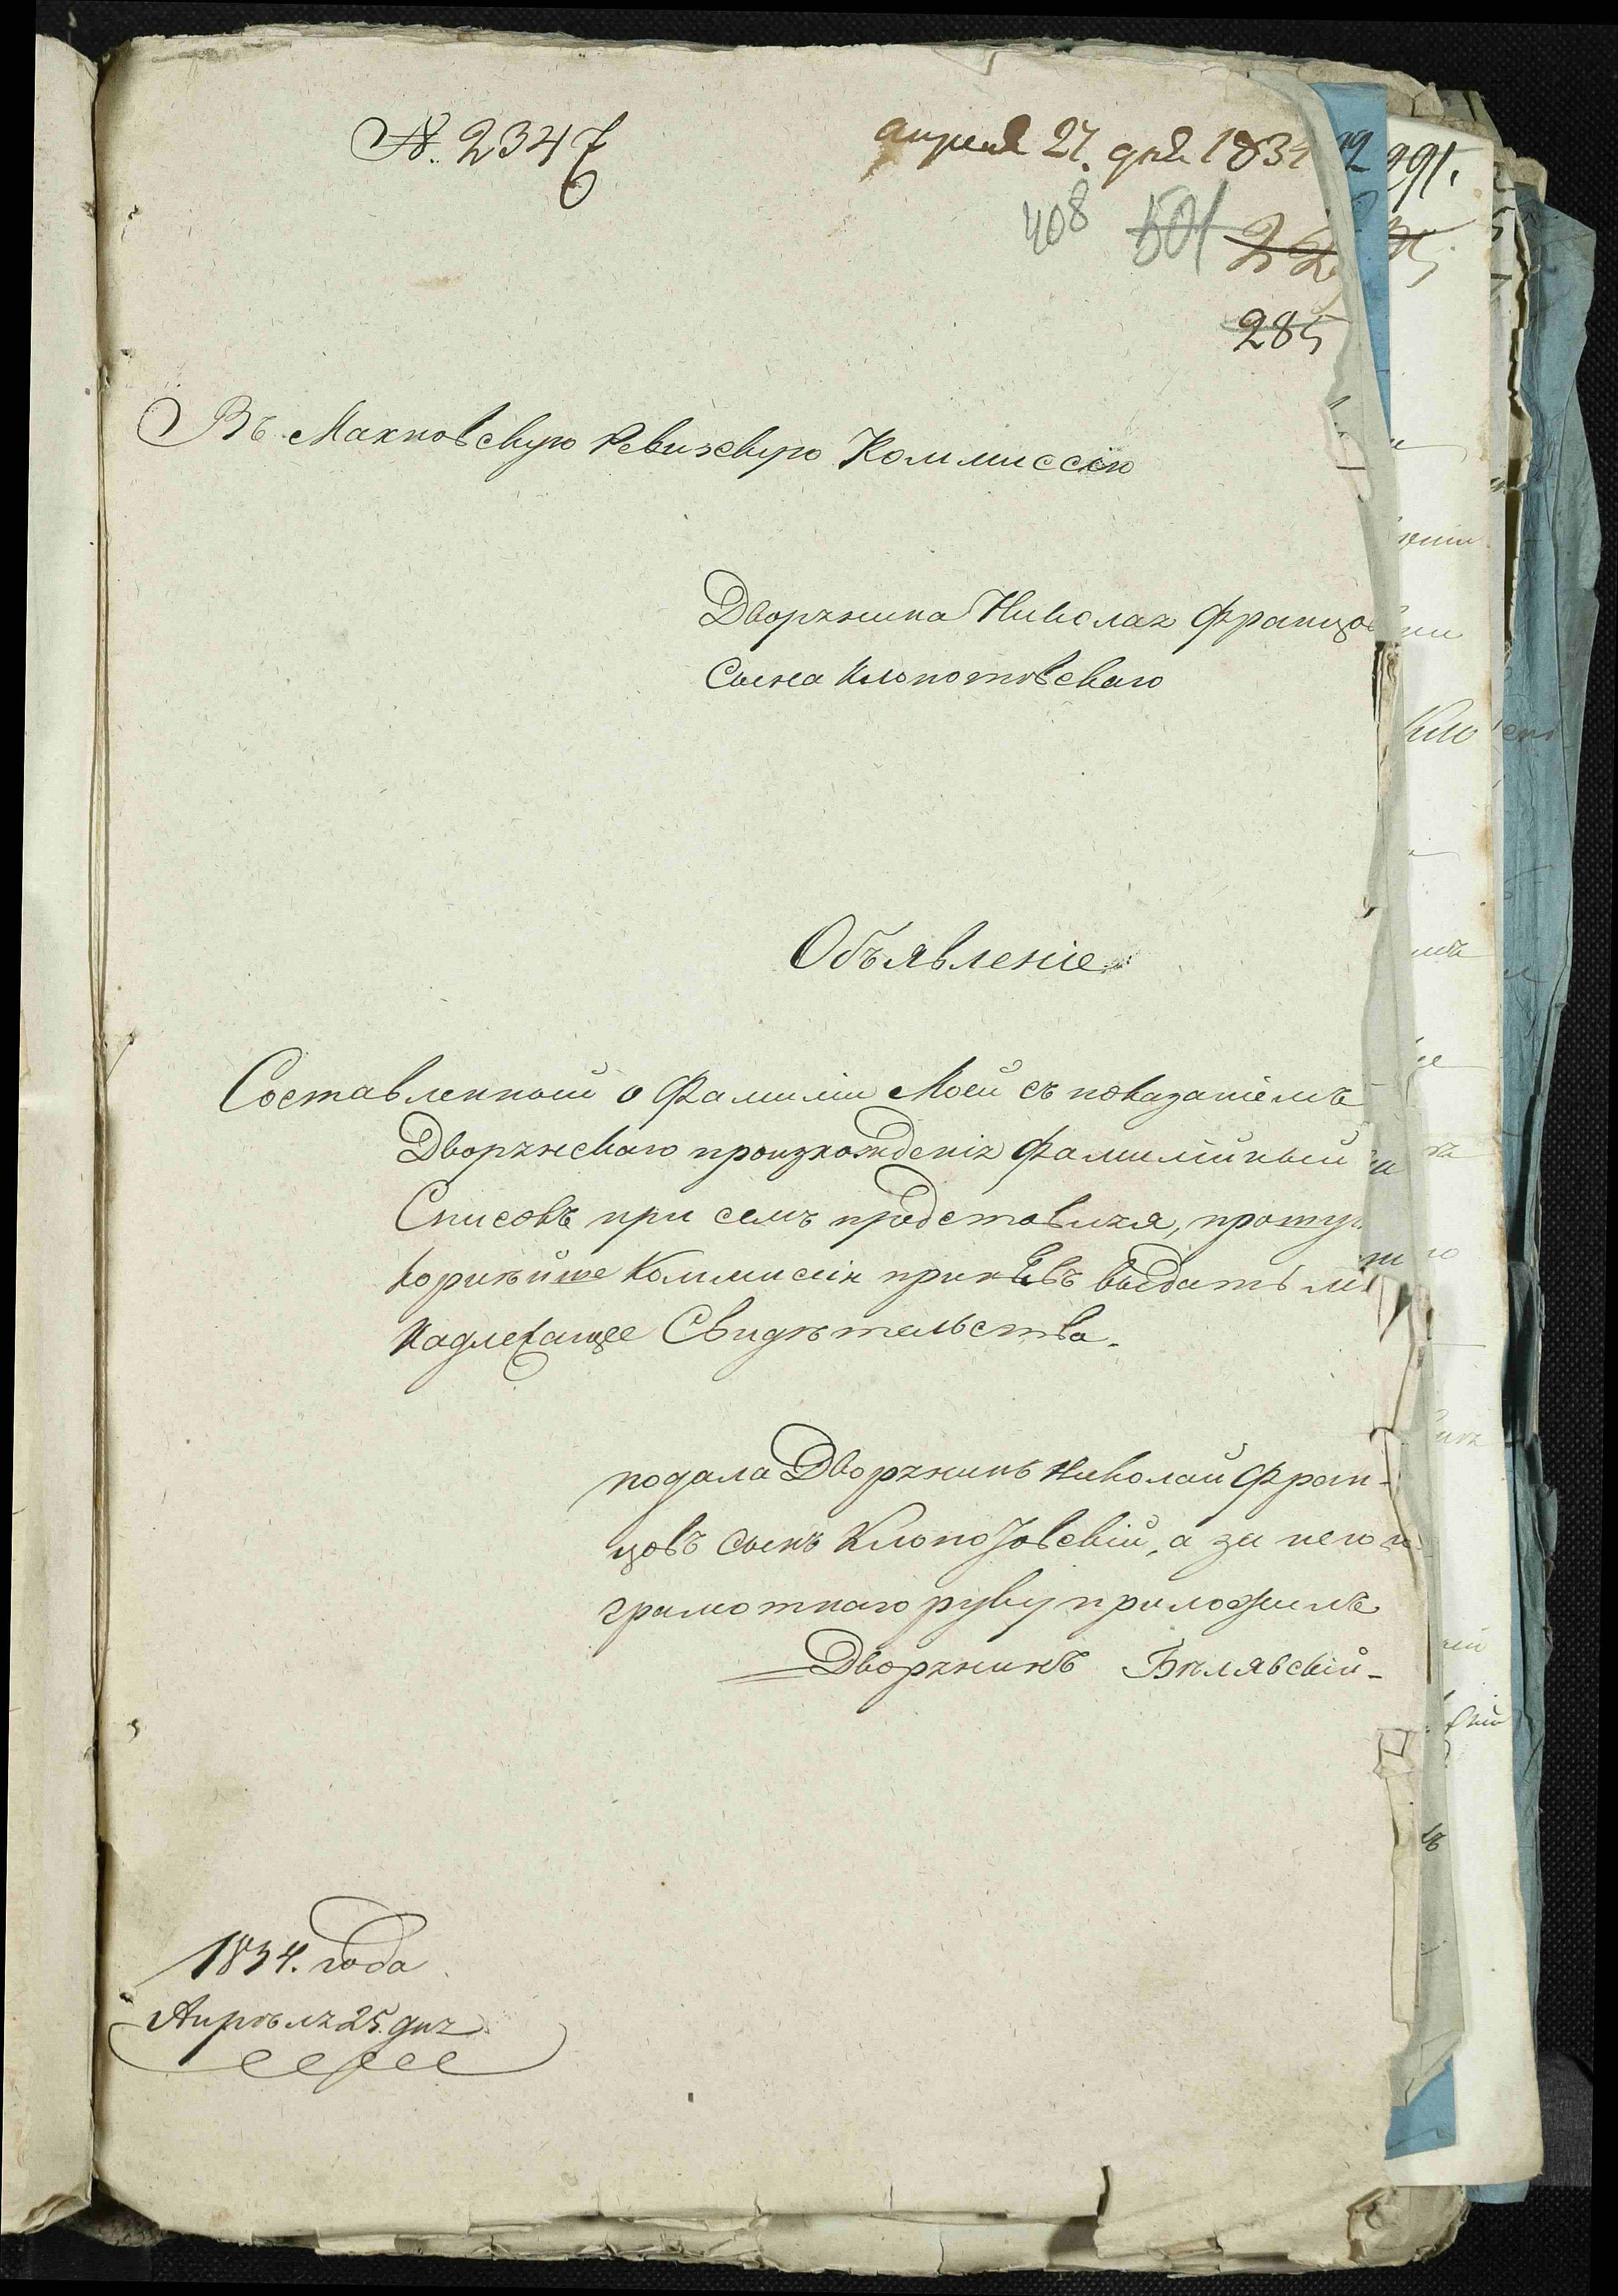 №. 2347
апреля 27. дня 1834
408 501
285
291.
Въ Махновскую Ревизскую Коммиссію
Дворянина Николая Францов
Сына Клопотовскаго
Объявленіе
Составленный о Фамиліи Моей съ показаніемъ
Дворянскаго произхожденія Фамилійный
Списокъ при семъ представляя,
Коммисія принявъ выдать
надлежащее Свидѣтельства.
подалъ Дворянинъ Николай Фран-
цовъ сынъ Клопотовскій, а за него не
грамотнаго руку приложилъ
Дворянинъ Бѣлявскій-
1834. года
Апрѣля 25. дня